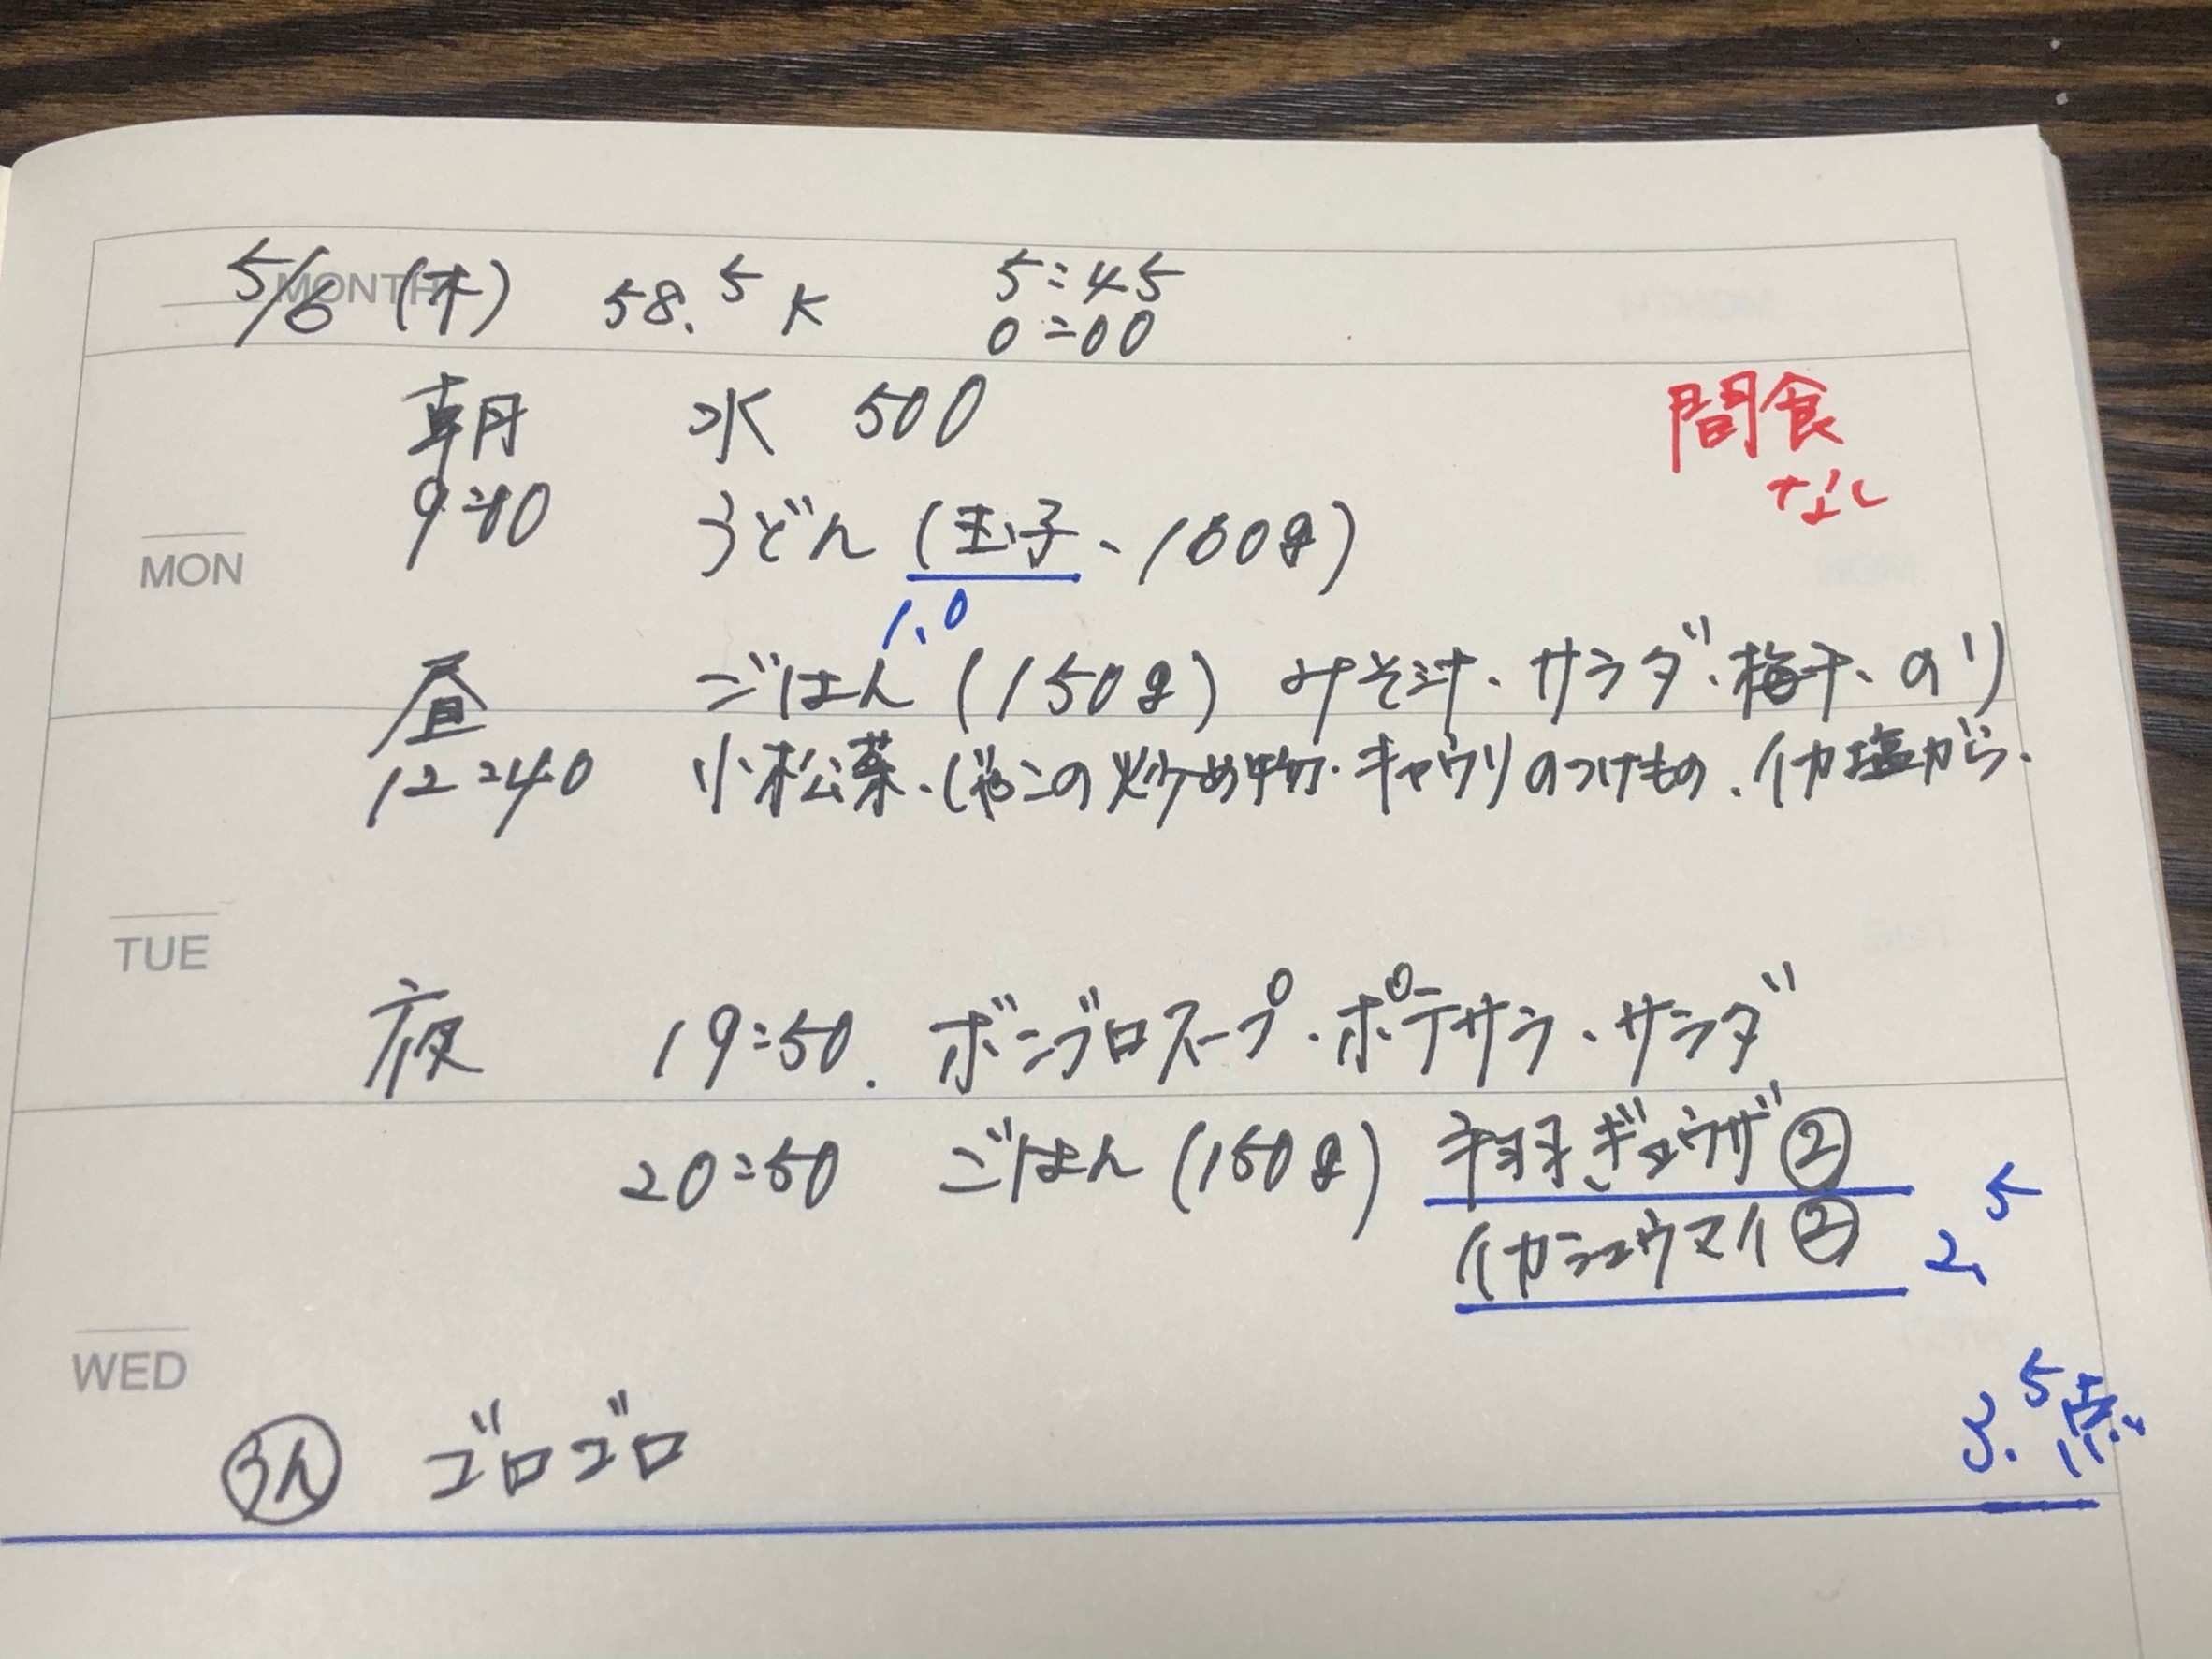 MONTH
5/6 (木) 58.5K 5:45
0:00
朝 水 500 間食
なし
9:40 うどん (玉子、150g)
MON
1.0
昼 ごはん (150g) みそ汁、サラダ、梅干、のり
12:40 小松菜、じゃこの炒め物、キャウリのつけもの、イカ塩から、
TUE
夜 19:50. ボンゴロスープ、ポテサラ、サラダ
20:50 ごはん (150g) 羽ギョウザ②
イカシュウマイ② 2.5
WED
3.5点
うん ゴロゴロ